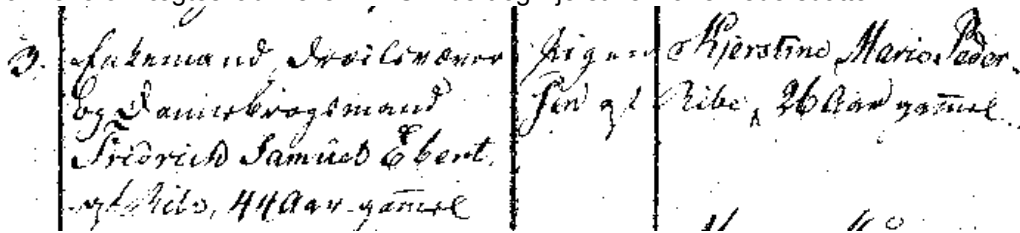 3. Enkemand, Dreilsvæver
og Dannebrogsmand
Fridrich Samuel Ebert.
af Ribe, 44 Aar gam̄el
Pigen Kjerstine Marie Peder-
sen af Ribe, 26 Aar gam̄el.